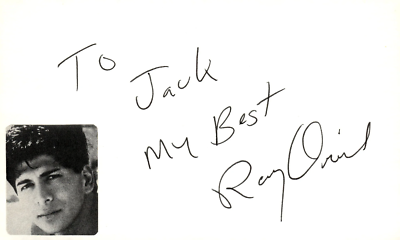 To
Jack
My Best
Ray